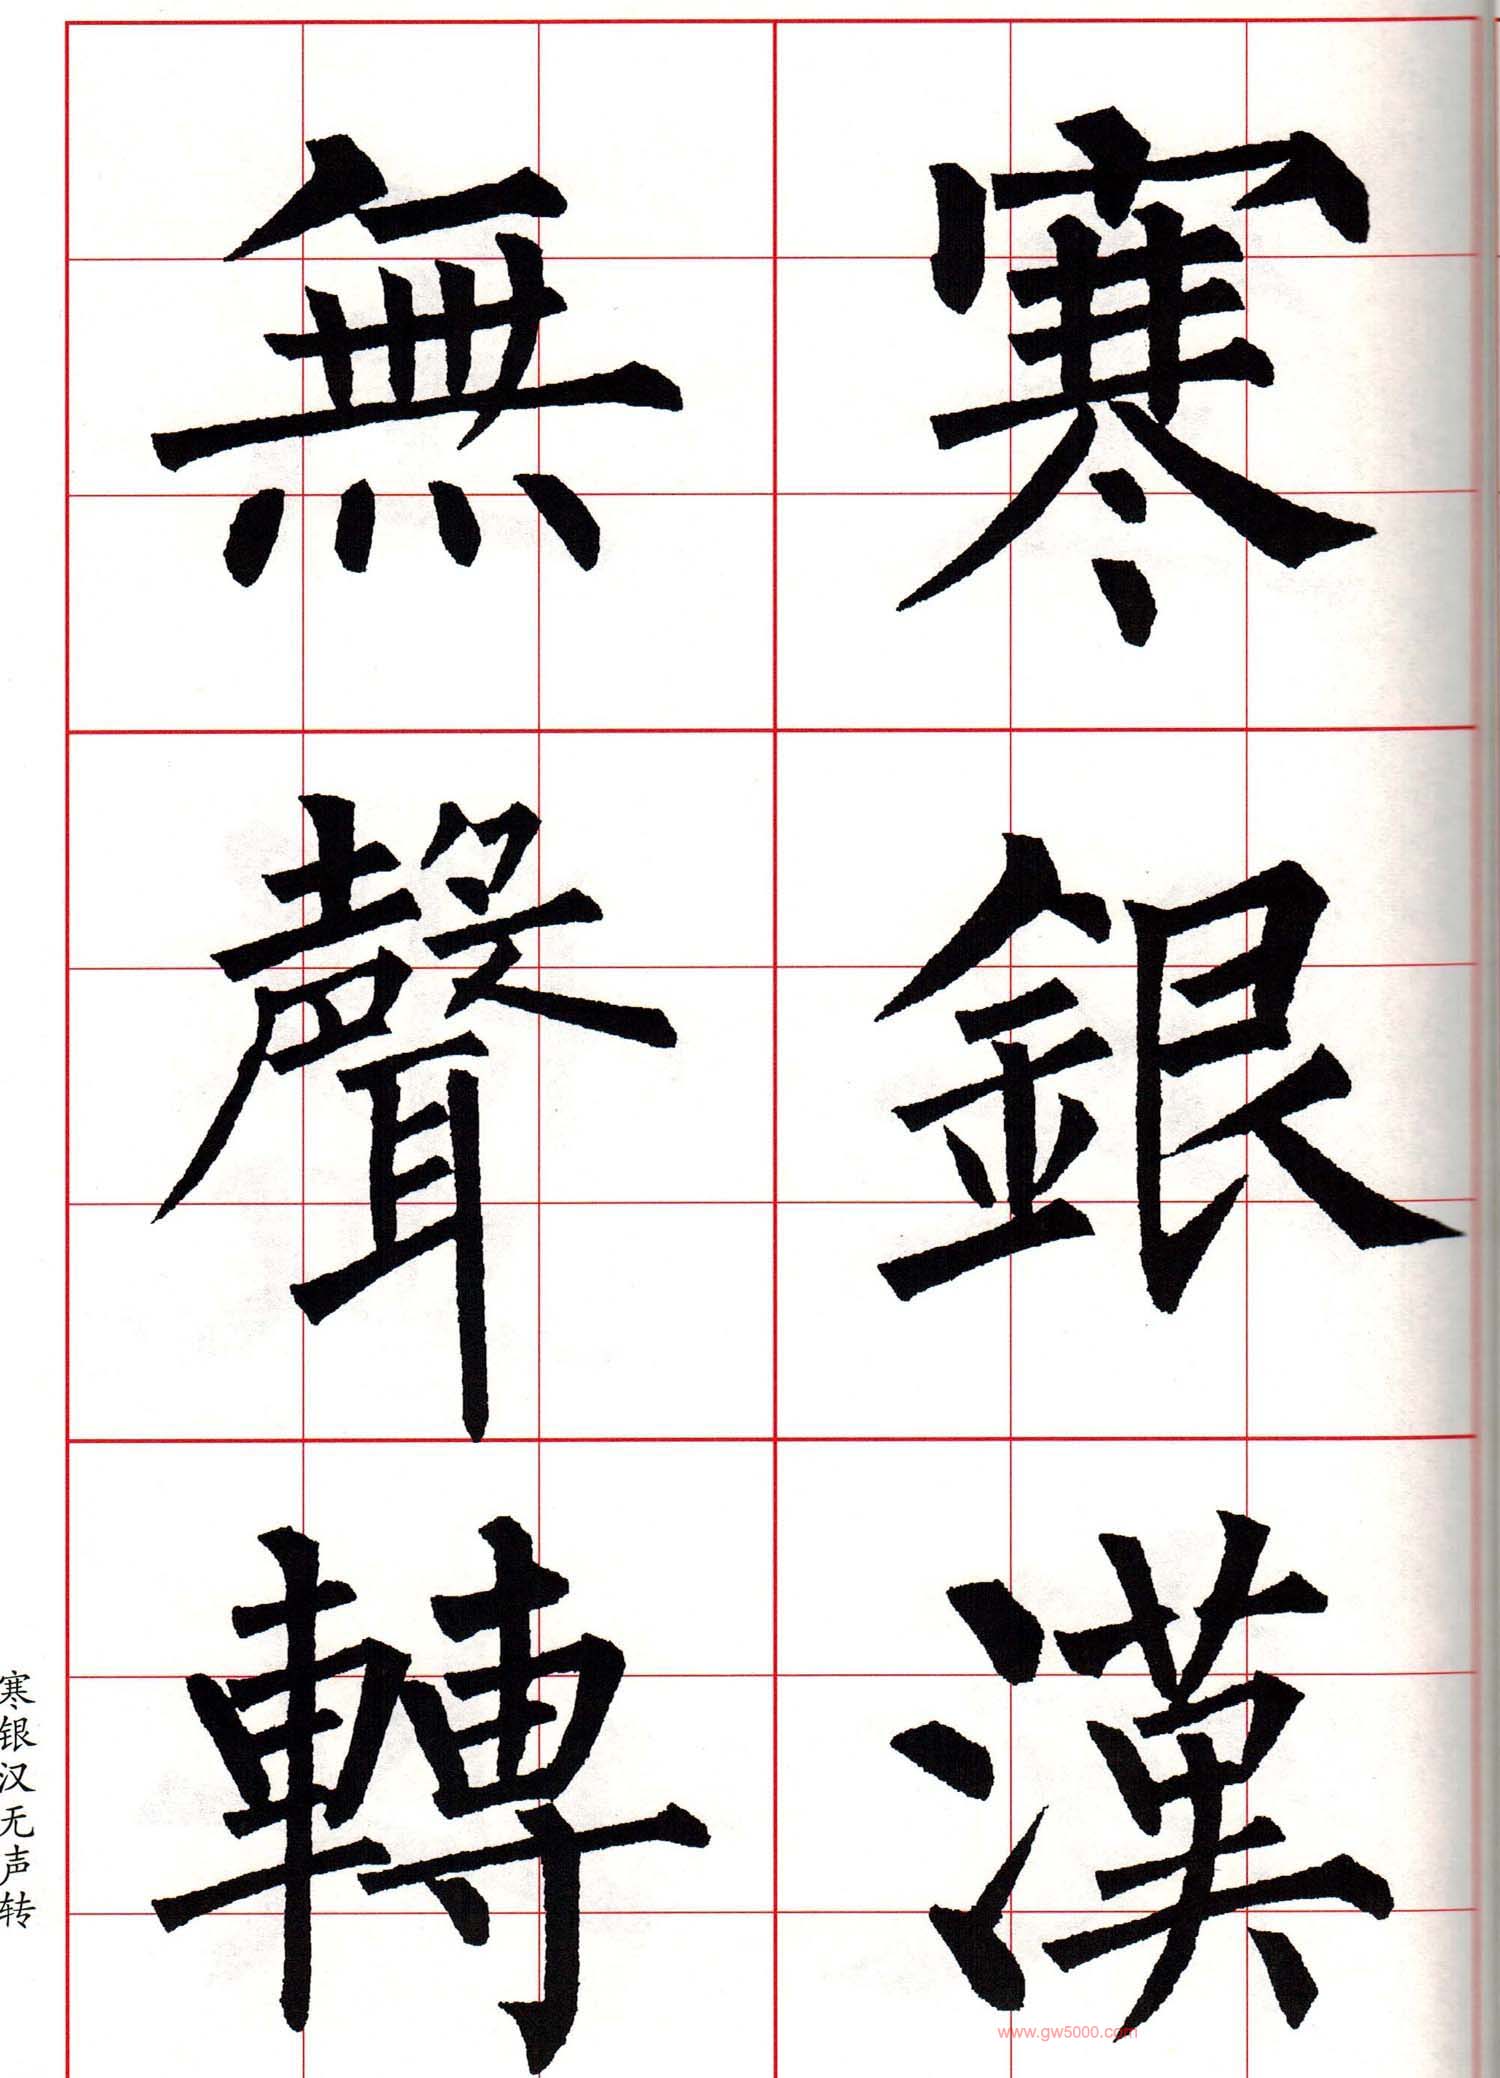 寒銀漢
無聲轉
寒银汉无声转
www.gw5000.com